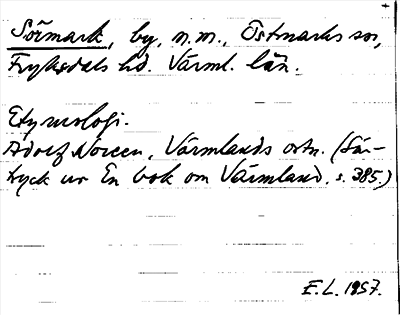 Sörmark, by, n.m., Östmarks sn,
Fryksdals hd. Värml. län.
Etymologi.
Adolf Noreen, Värmlands ortn. (Sär-
tryck ur En bok om Värmland, s. 385.)
E.L. 1957.